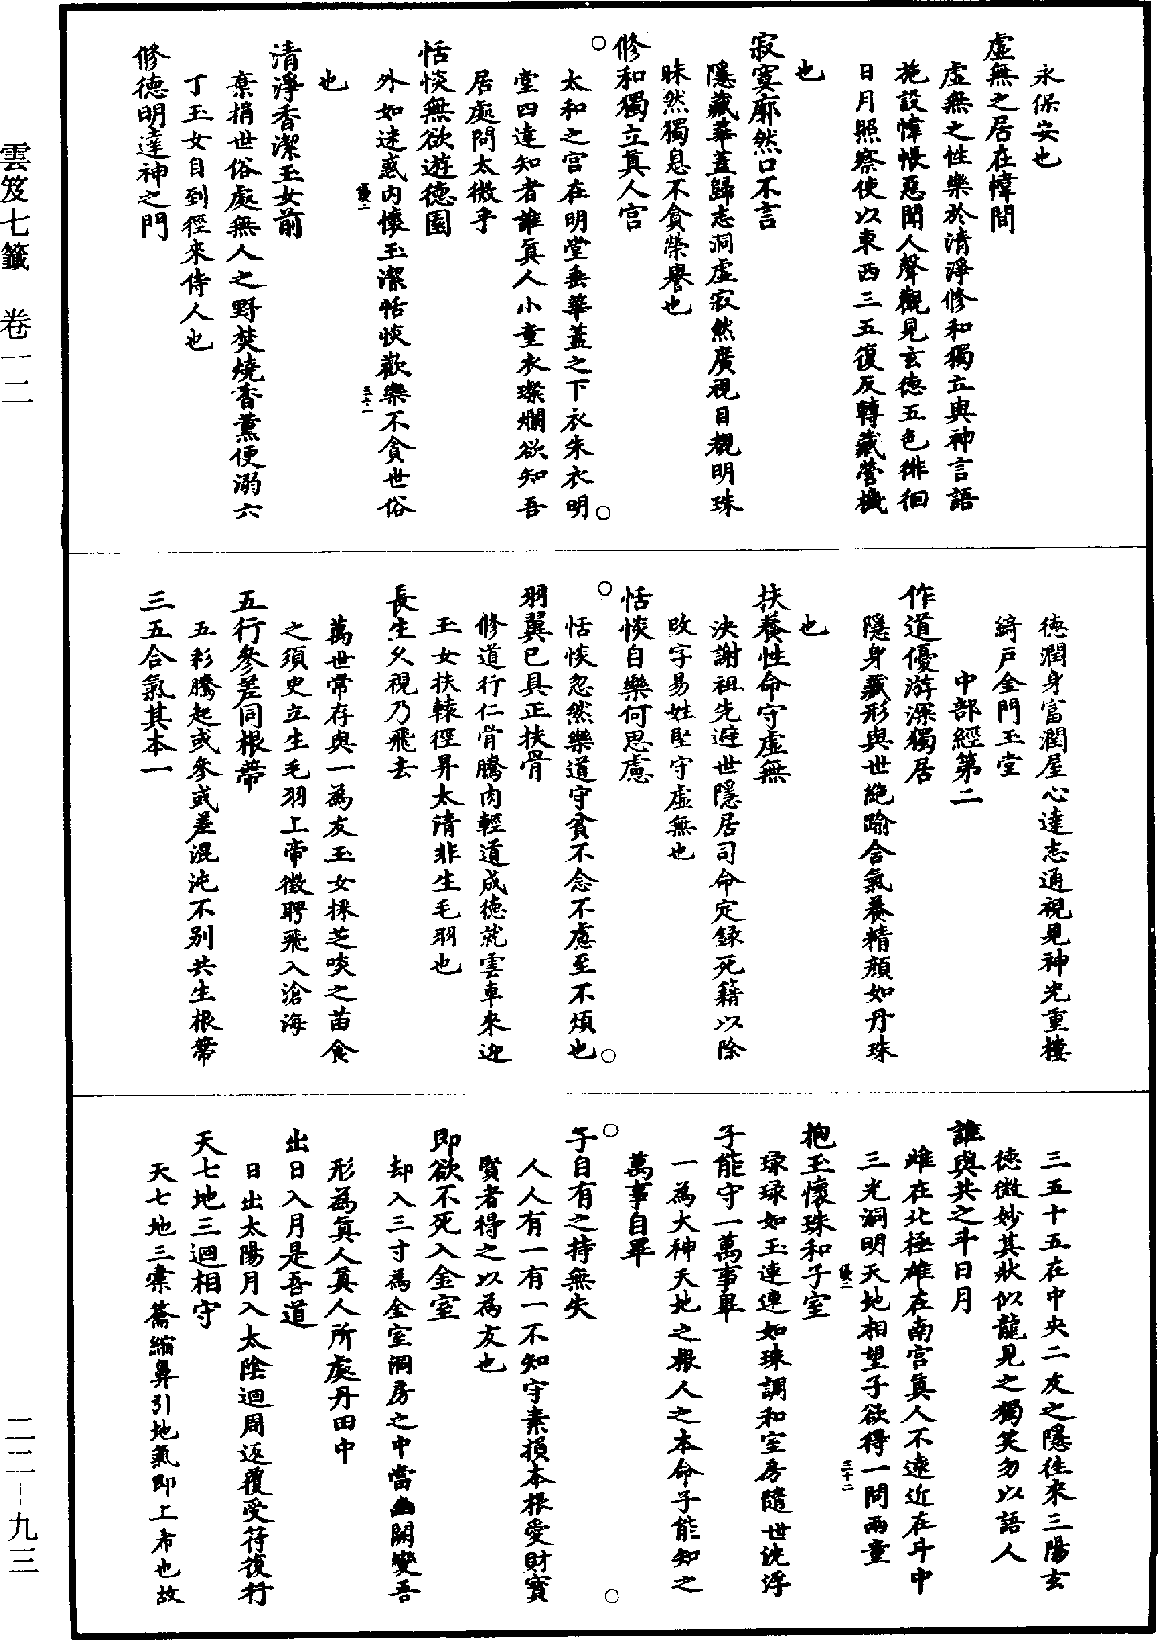 永保安也
虛無之居在幃間
虛無之性樂於清淨修和獨立與神言語
施設幃帳惡聞人聲觀見玄德五色徘徊
日月照察使以東西三五復反轉藏營機
也
寂寞廓然口不言
隱藏華蓋歸志洞虛寂然廣視目覩明珠
昧然獨息不貪榮譽也
修和獨立真人宮
太和之宮在明堂垂華蓋之下衣朱衣明
堂四達知者誰真人小童衣璨爛欲知吾
居處問太微乎
恬惔無欲遊德園
外如迷惑內懷玉潔恬惔歡樂不貪世俗
也
清淨香潔玉女前
棄捐世俗處無人之野焚燒香薰便溺六
丁玉女自到徑來侍人也
修德明達神之門
德潤身富潤屋心達志通視見神光重樓
綺戶金門玉堂
中部經第二
作道優游深獨居
隱身藏形與世絕踰含氣養精顏如丹珠
也
扶養性命守虛無
決謝祖先避世隱居司命定錄死籍以除
改字易姓堅守虛無也
恬惔自樂何思慮
恬惔忽然樂道守貧不念不慮至不煩也
羽翼已具正扶骨
修道行仁骨騰肉輕道成德就雲車來迎
玉女扶轅徑昇太清非生毛羽也
長生久視乃飛去
萬世常存與一為友玉女採芝啖之苗食
之須臾立生毛羽上帝徵聘飛入滄海
五行參差同根蔕
五彩騰起或參或差混沌不別共生根蔕
三五合氣其本一
三五十五在中央二友之隱往來三陽玄
德微妙其狀似龍見之獨笑勿以語人
誰與共之斗日月
雌在北極雄在南宮真人不遠近在斗中
三光洞明天地相望子欲得一問兩童
抱玉懷珠和子室
琭琭如玉連連如珠調和室房隨世沈浮
子能守一萬事畢
一為大神天地之根人之本命子能知之
萬事自畢
子自有之持無失
人人有一有一不知守素損本根愛財寶
賢者得之以為友也
即欲不死入金室
却入三寸為金室洞房之中當幽闕變吾
形為真人真人所處丹田中
出日入月是吾道
日出太陽月入太陰迴周返覆受符復行
天七地三迴相守
天七地三槖籥縮鼻引地氣即上布也故
雲笈七籤 卷一二
二二—九三